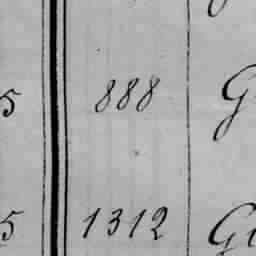 5 888 G
5 1312 Gi